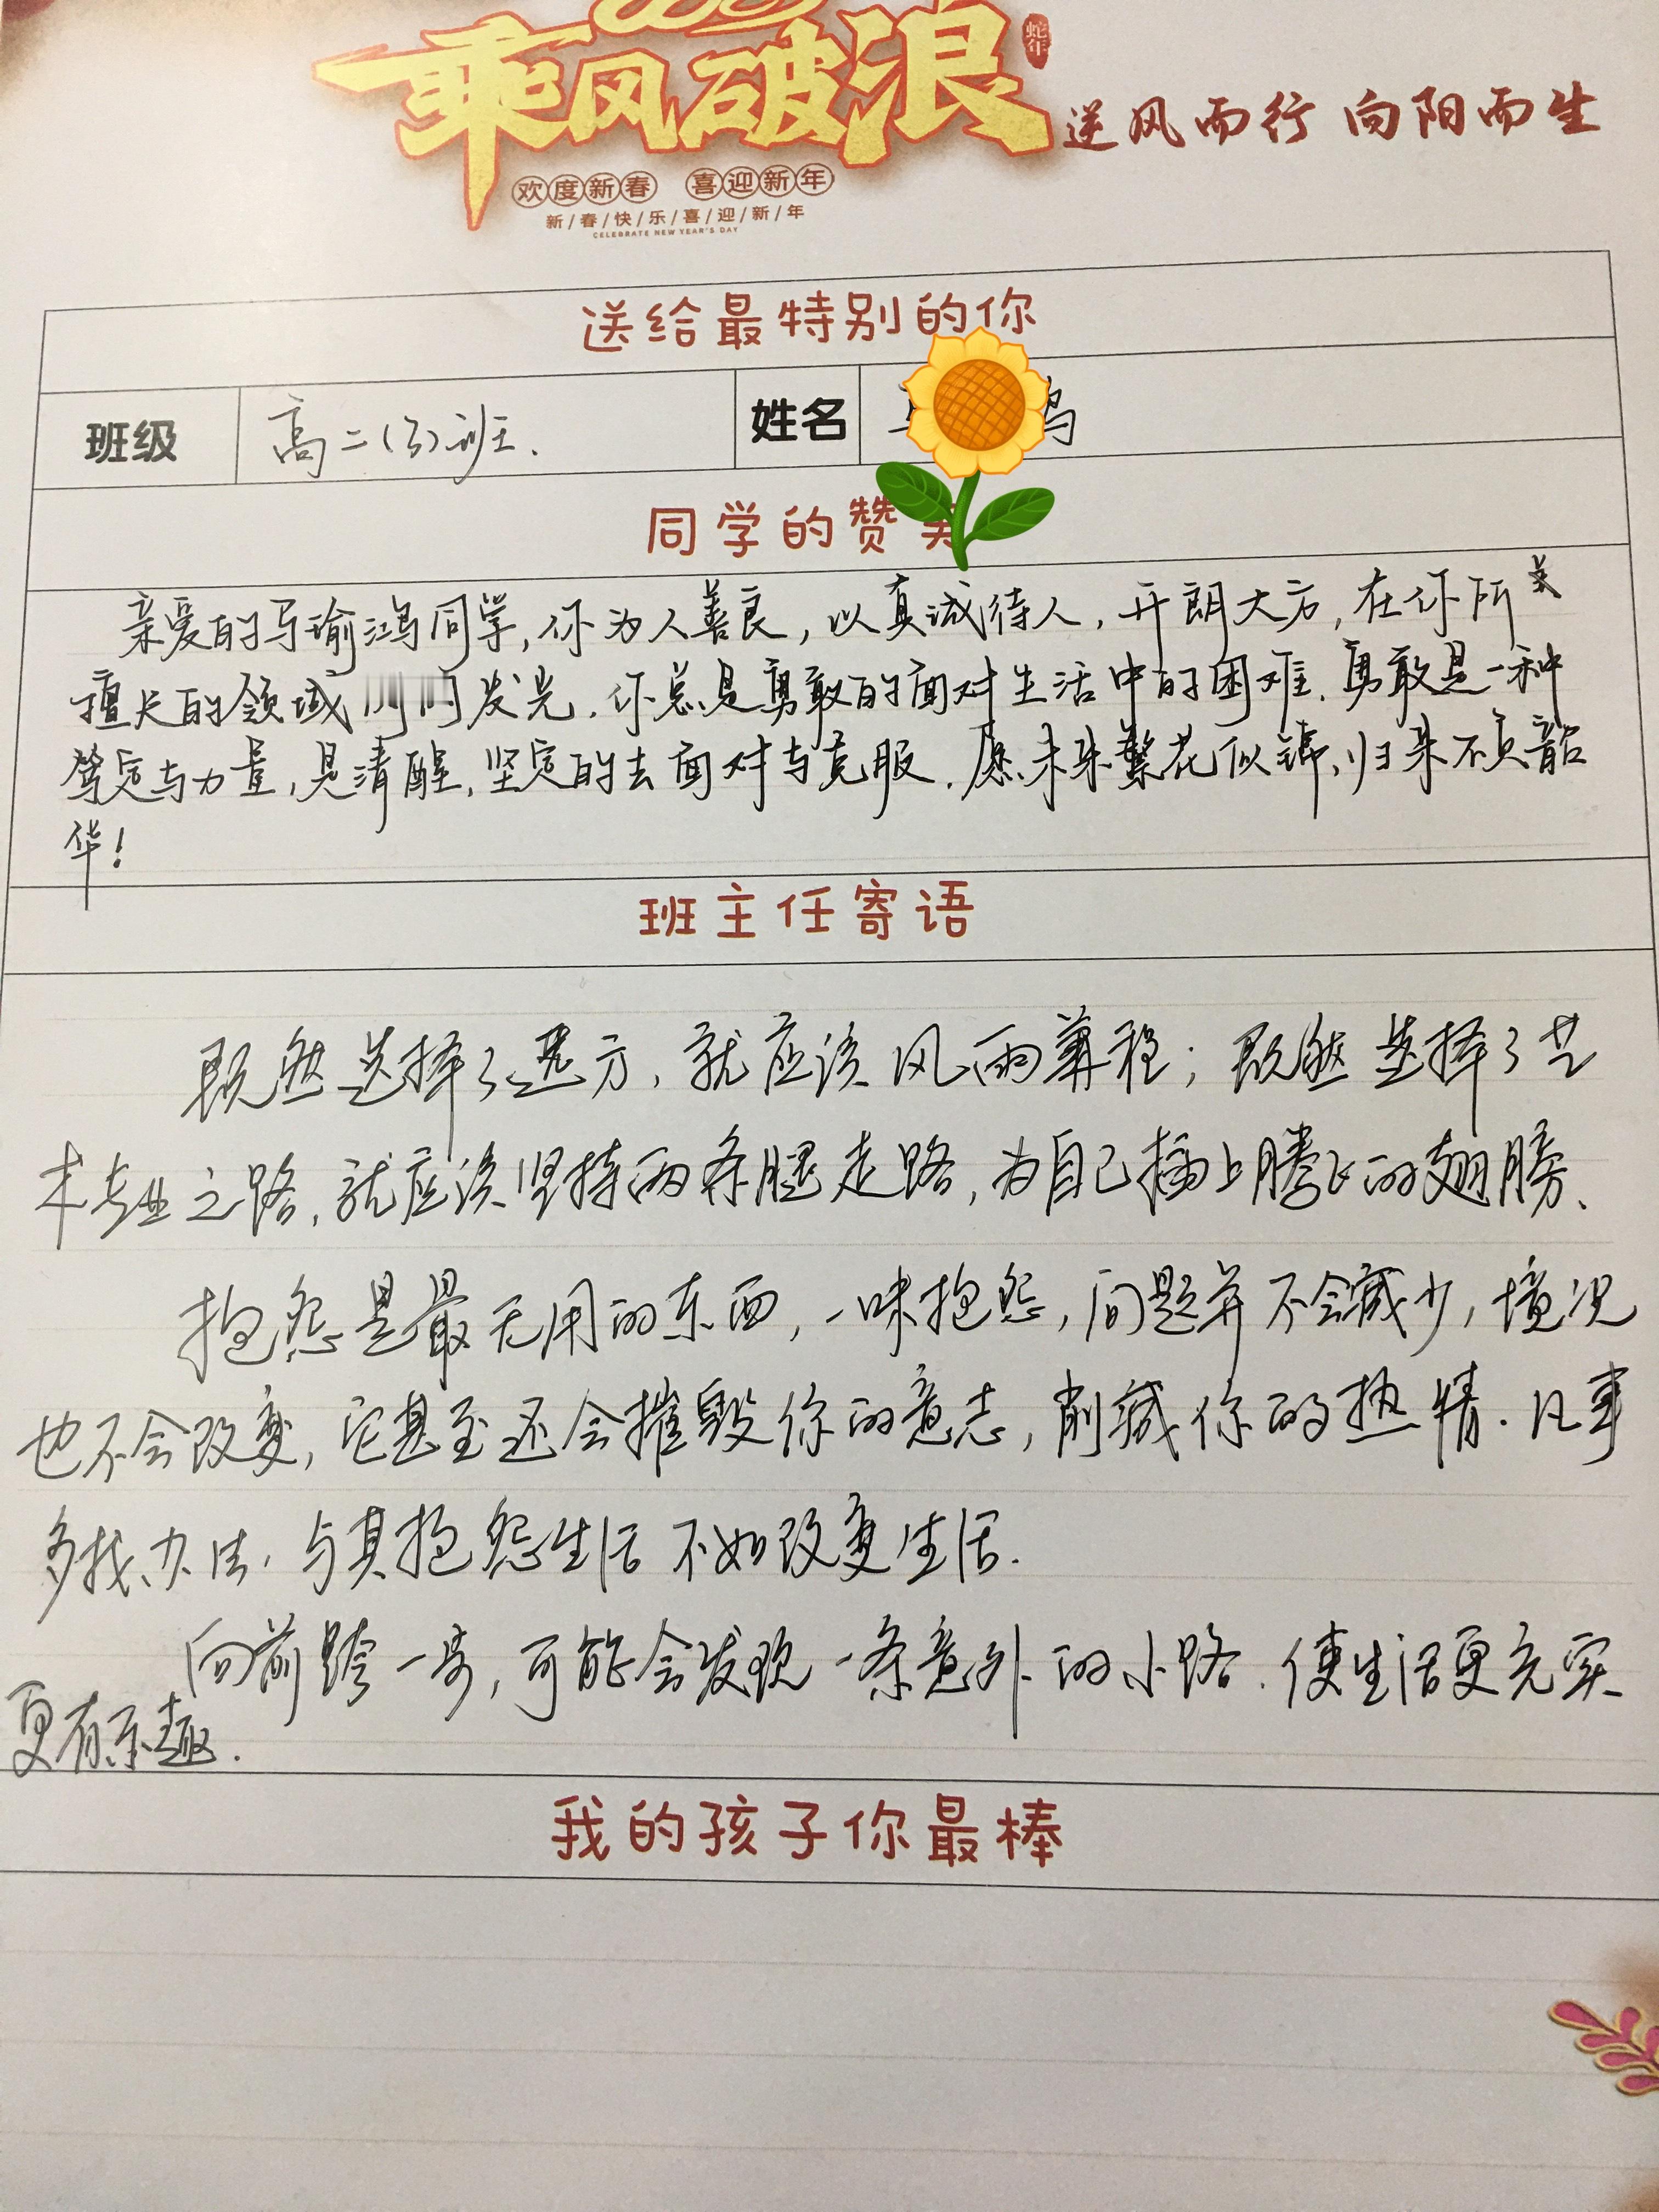 乘风破浪
蛇年
逆风而行 向阳而生
欢度新春 喜迎新年
新/春/快/乐/喜/迎/新/年
CELEBRATE NEW YEAR'S DAY
送给最特别的你
班级 高二(3)班. 姓名
同学的赞美
亲爱的马瑜鸿同学,你为人善良,以真诚待人,开朗大方,在你所
擅长的领域闪闪发光.你总是勇敢的面对生活中的困难.勇敢是一种
笃定与力量,是清醒,坚定的去面对与克服.愿未来繁花似锦,归来不负韶
华!
班主任寄语
既然选择了远方,就应该风雨兼程;既然选择了艺
术专业之路,就应该坚持两条腿走路,为自己插上腾飞的翅膀、
抱怨是最无用的东西,一味抱怨,问题并不会减少,境况
也不会改变,它甚至还会摧毁你的意志,削减你的热情.凡事
多找办法,与其抱怨生活不如改变生活.
向前跨一步,可能会发现一条意外的小路.使生活更充实
更有乐趣.
我的孩子你最棒